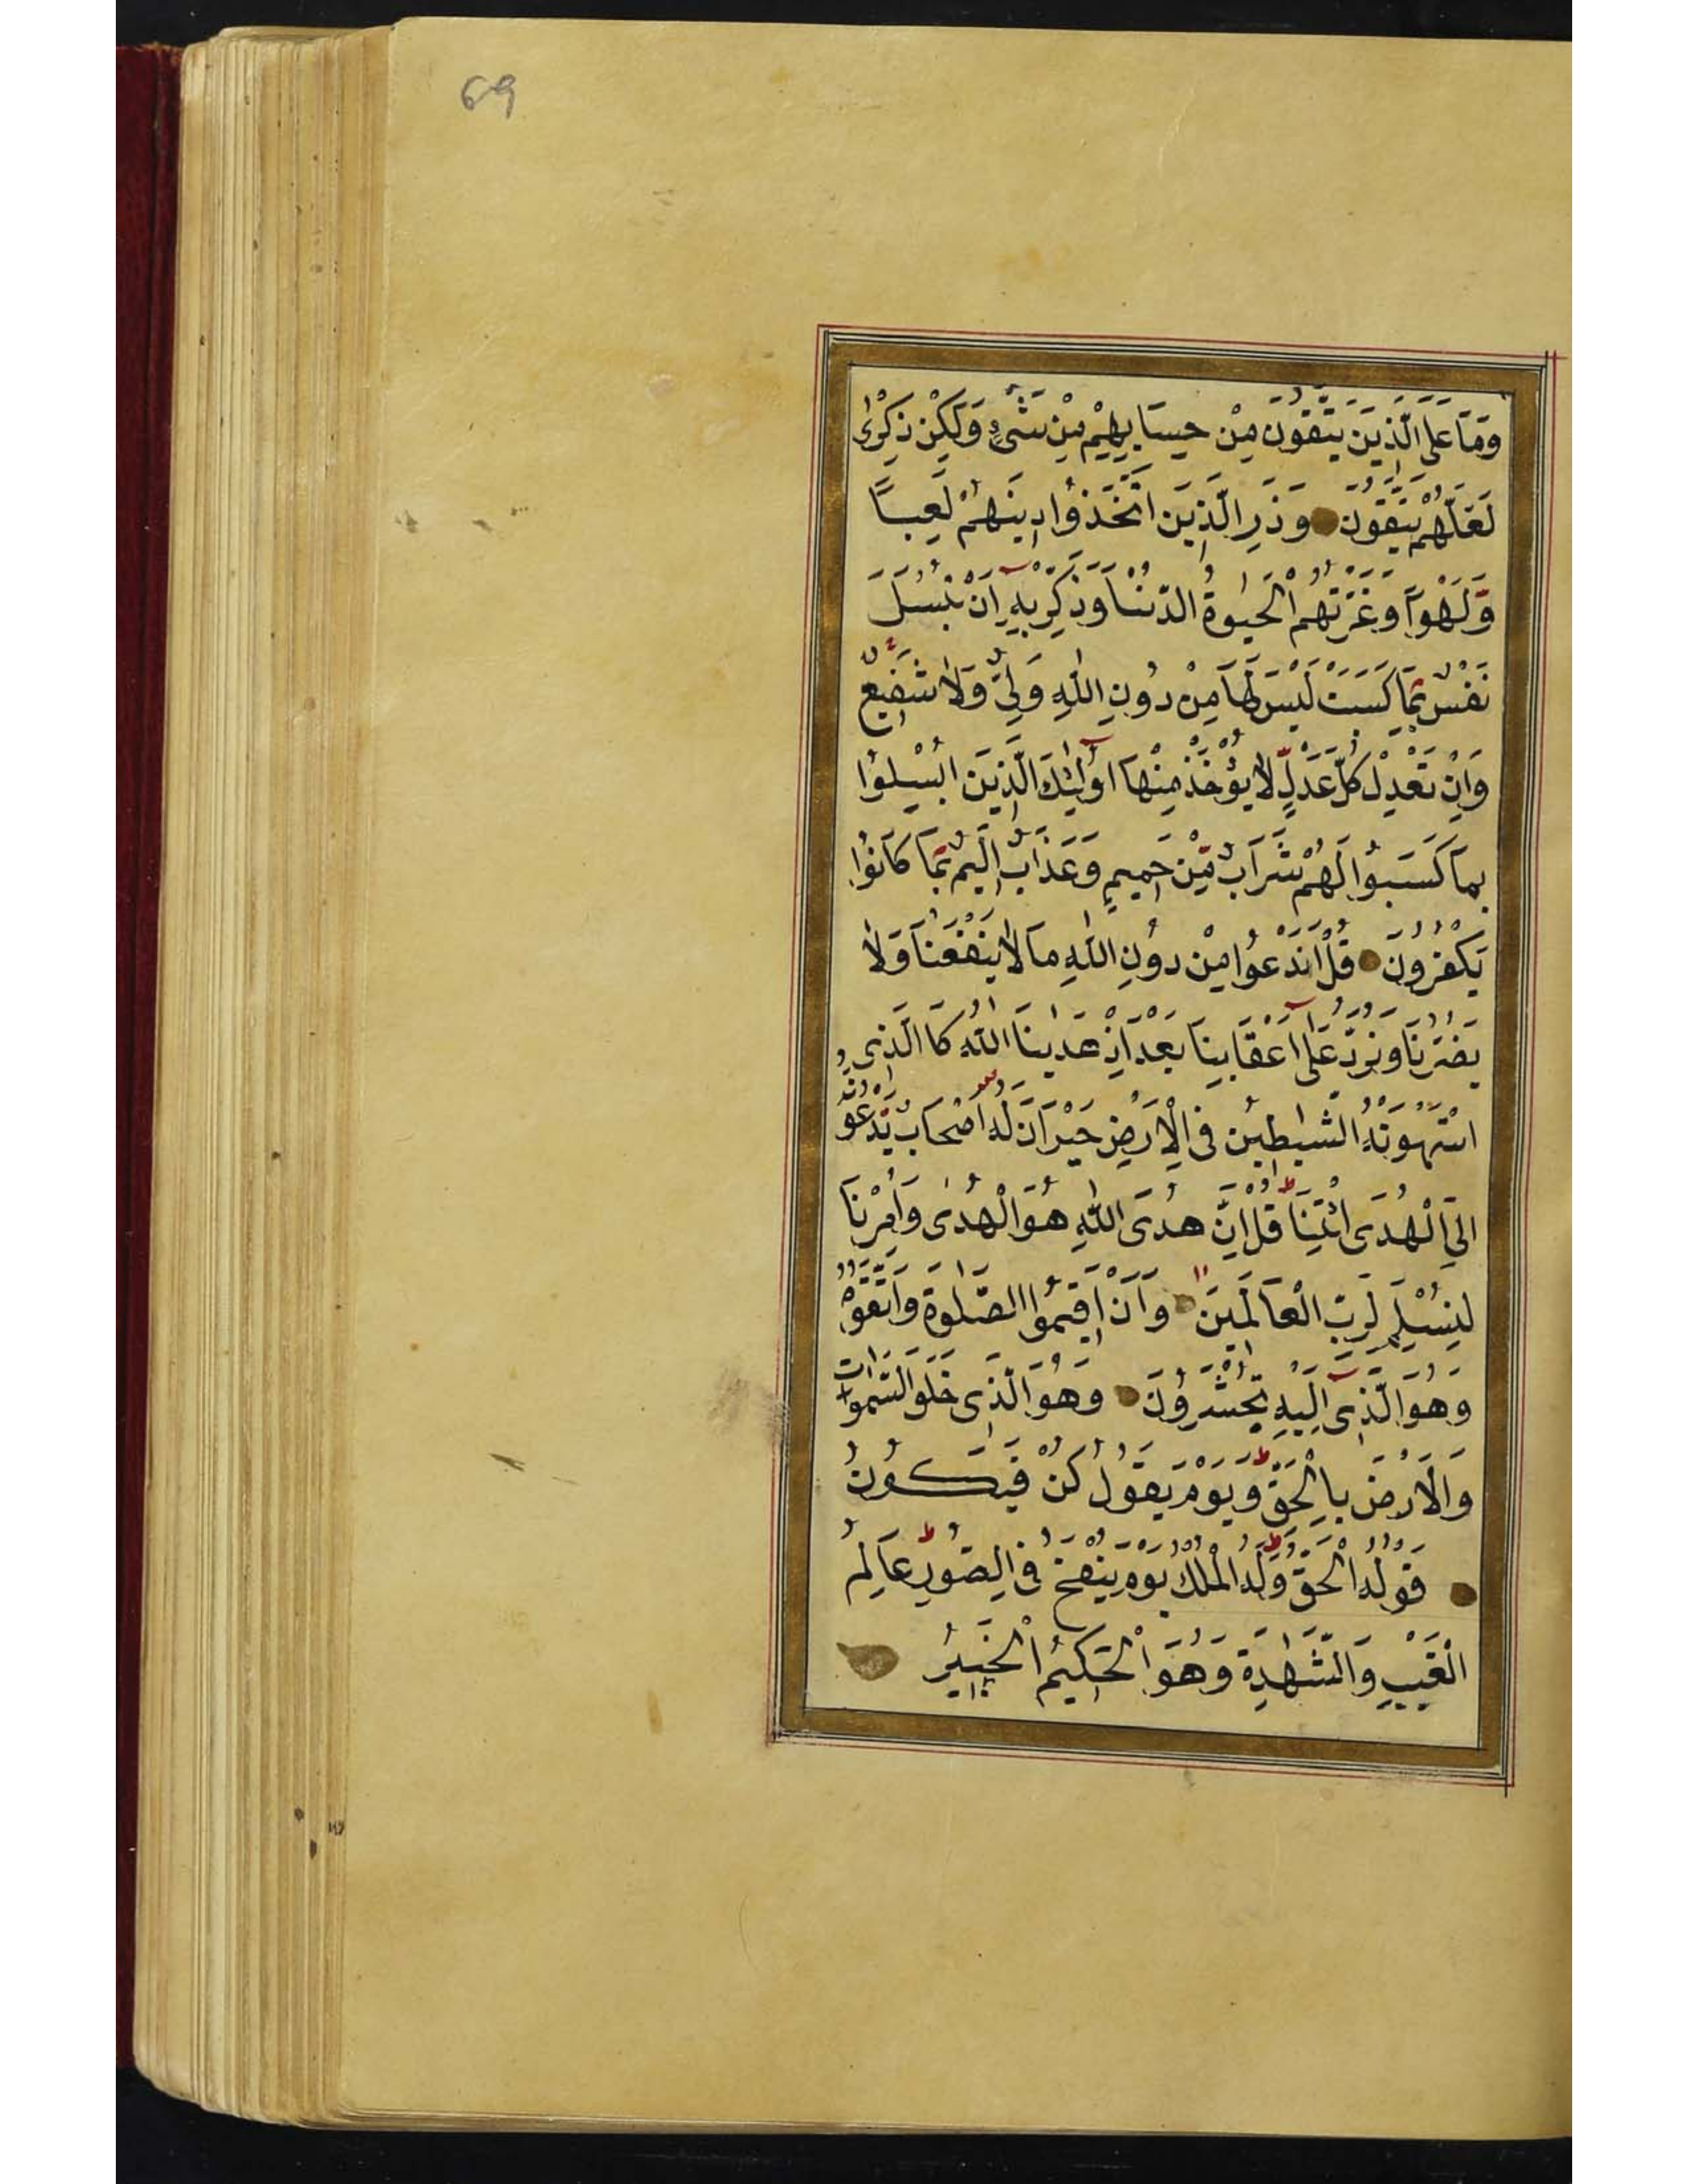 69
وَمَا عَلَى الَّذِينَ يَتَّقُونَ مِنْ حِسَابِهِمْ مِنْ شَىْءٍ وَلٰكِنْ ذِكْرٰى
لَعَلَّهُمْ يَتَّقُونَ وَذَرِ الَّذِينَ اتَّخَذُوا دِينَهُمْ لَعِبًا
وَّلَهْوًا وَغَرَّتْهُمُ الْحَيٰوةُ الدُّنْيَا وَذَكِّرْ بِهٖ اَنْ تُبْسَلَ
نَفْسٌ بِمَا كَسَبَتْ لَيْسَ لَهَا مِنْ دُونِ اللّٰهِ وَلِىٌّ وَلَا شَفِيعٌ
وَاِنْ تَعْدِلْ كُلَّ عَدْلٍ لَا يُؤْخَذْ مِنْهَا اُولٰئِكَ الَّذِينَ اُبْسِلُوا
بِمَا كَسَبُوا لَهُمْ شَرَابٌ مِّنْ حَمِيمٍ وَعَذَابٌ اَلِيمٌ بِمَا كَانُوا
يَكْفُرُونَ قُلْ اَنَدْعُوا مِنْ دُونِ اللّٰهِ مَا لَا يَنْفَعُنَا وَلَا
يَضُرُّنَا وَنُرَدُّ عَلٰى اَعْقَابِنَا بَعْدَ اِذْ هَدٰينَا اللّٰهُ كَالَّذِى
اسْتَهْوَتْهُ الشَّيٰطِينُ فِى الْاَرْضِ حَيْرَانَ لَهُ اَصْحَابٌ يَّدْعُونَهُ
اِلَى الْهُدَى ائْتِنَا قُلْ اِنَّ هُدَى اللّٰهِ هُوَ الْهُدٰى وَاُمِرْنَا
لِنُسْلِمَ لِرَبِّ الْعَالَمِينَ وَاَنْ اَقِيمُوا الصَّلٰوةَ وَاتَّقُوهُ
وَهُوَ الَّذِى اِلَيْهِ تُحْشَرُونَ وَهُوَ الَّذِى خَلَقَ السَّمٰوَاتِ
وَالْاَرْضَ بِالْحَقِّ وَيَوْمَ يَقُولُ كُنْ فَيَكُونُ
قَوْلُهُ الْحَقُّ وَلَهُ الْمُلْكُ يَوْمَ يُنْفَخُ فِى الصُّورِ عَالِمُ
الْغَيْبِ وَالشَّهٰدَةِ وَهُوَ الْحَكِيمُ الْخَبِيرُ